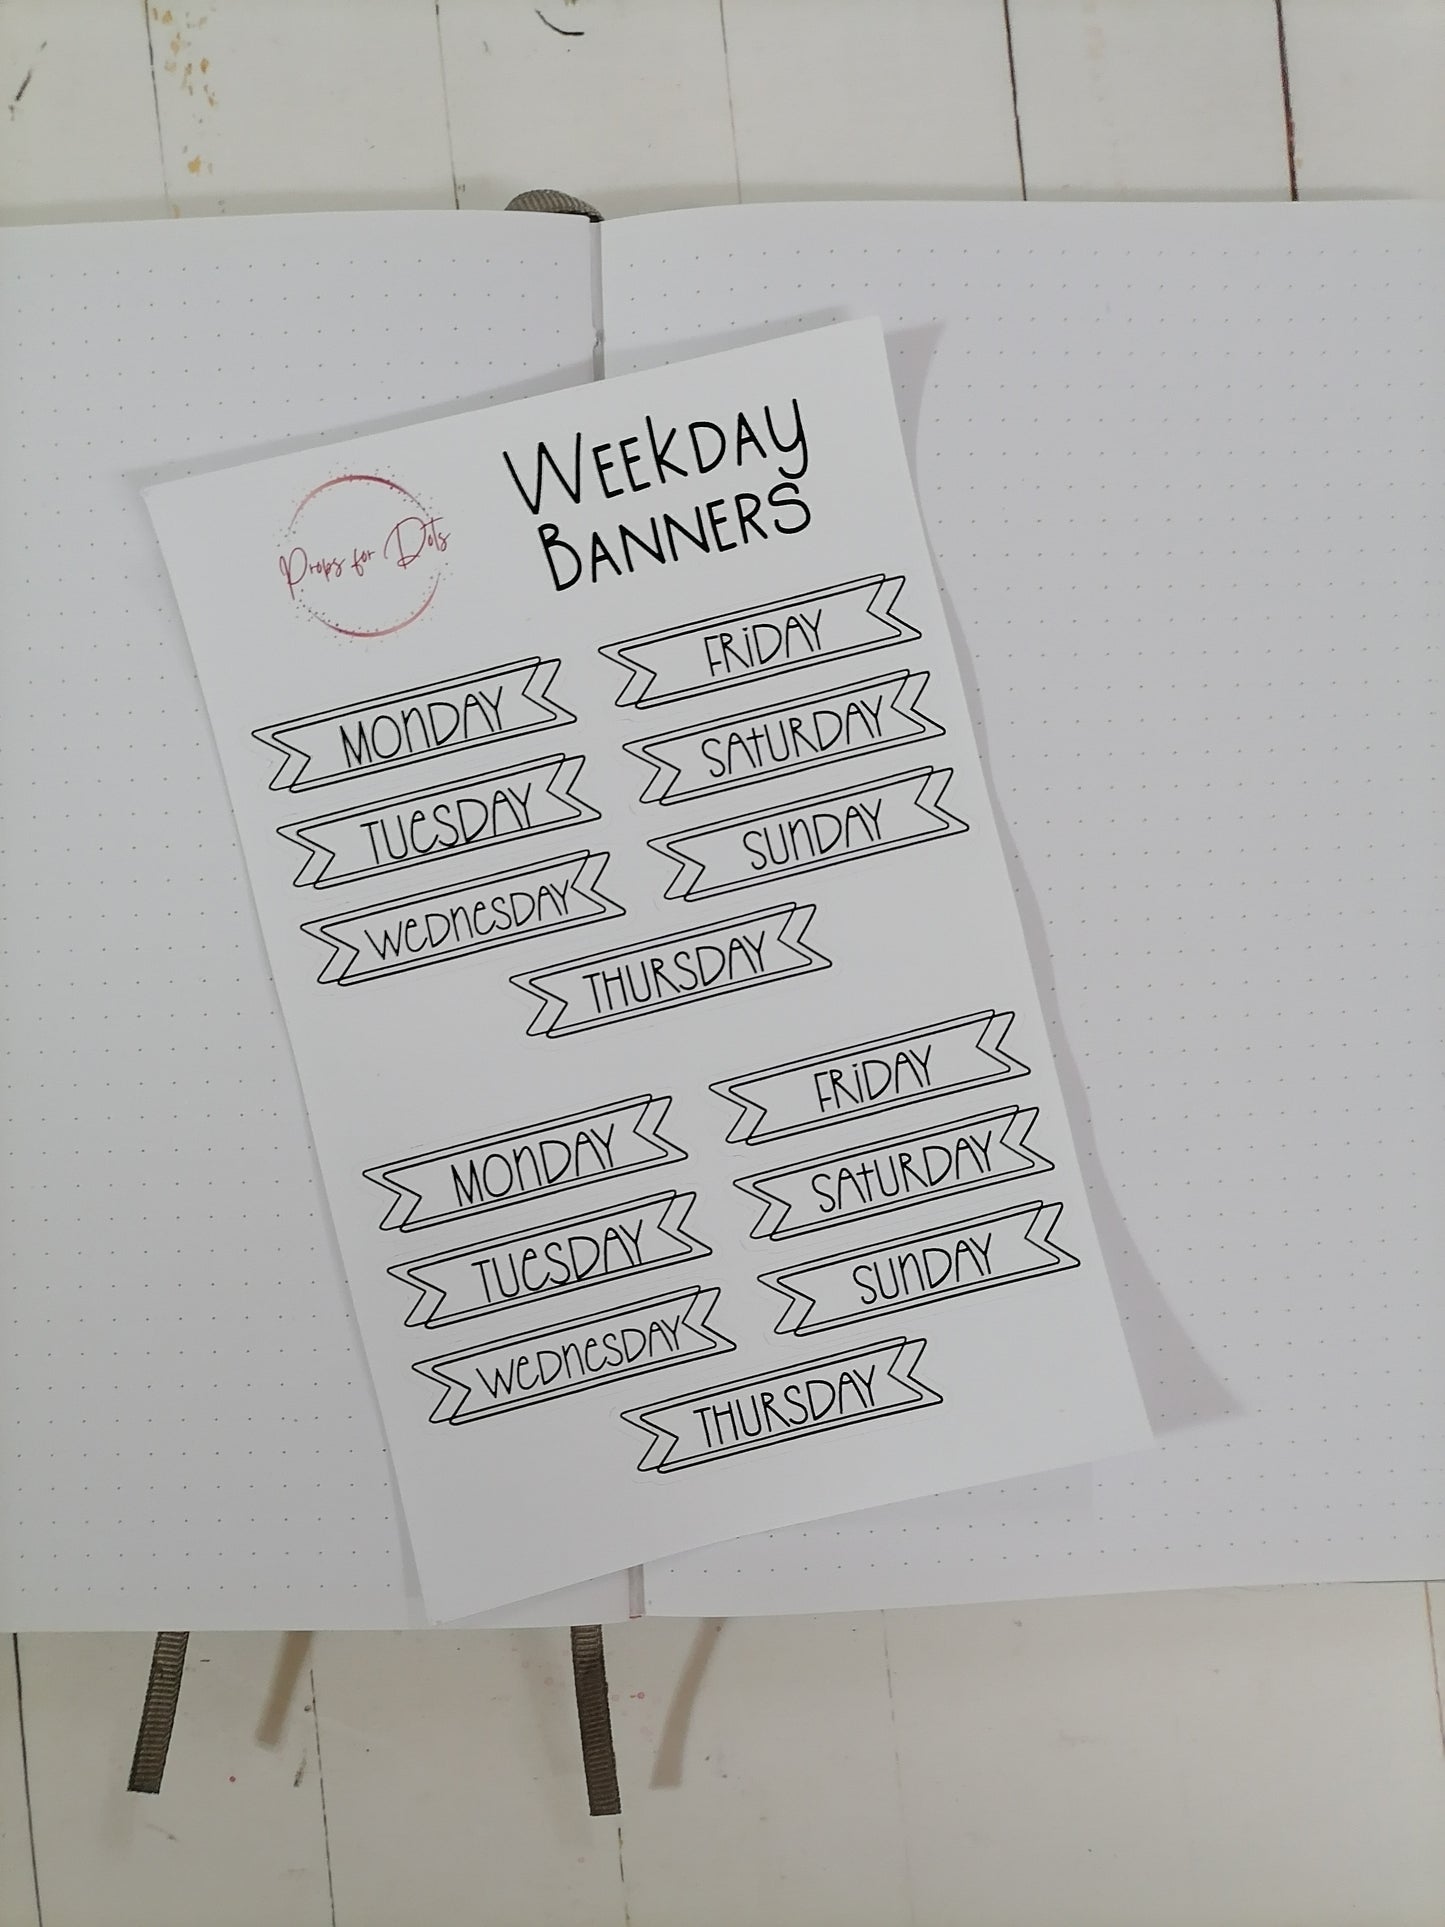 Props for Dots
WEEKDAY
BANNERS
MONDAY
TUESDAY
WEDNESDAY
FRIDAY
SATURDAY
SUNDAY
THURSDAY
MONDAY
TUESDAY
WEDNESDAY
FRIDAY
SATURDAY
SUNDAY
THURSDAY